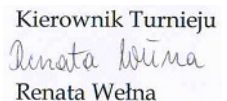 Kierownik Turnieju
Renata Wełna
Renata Wełna